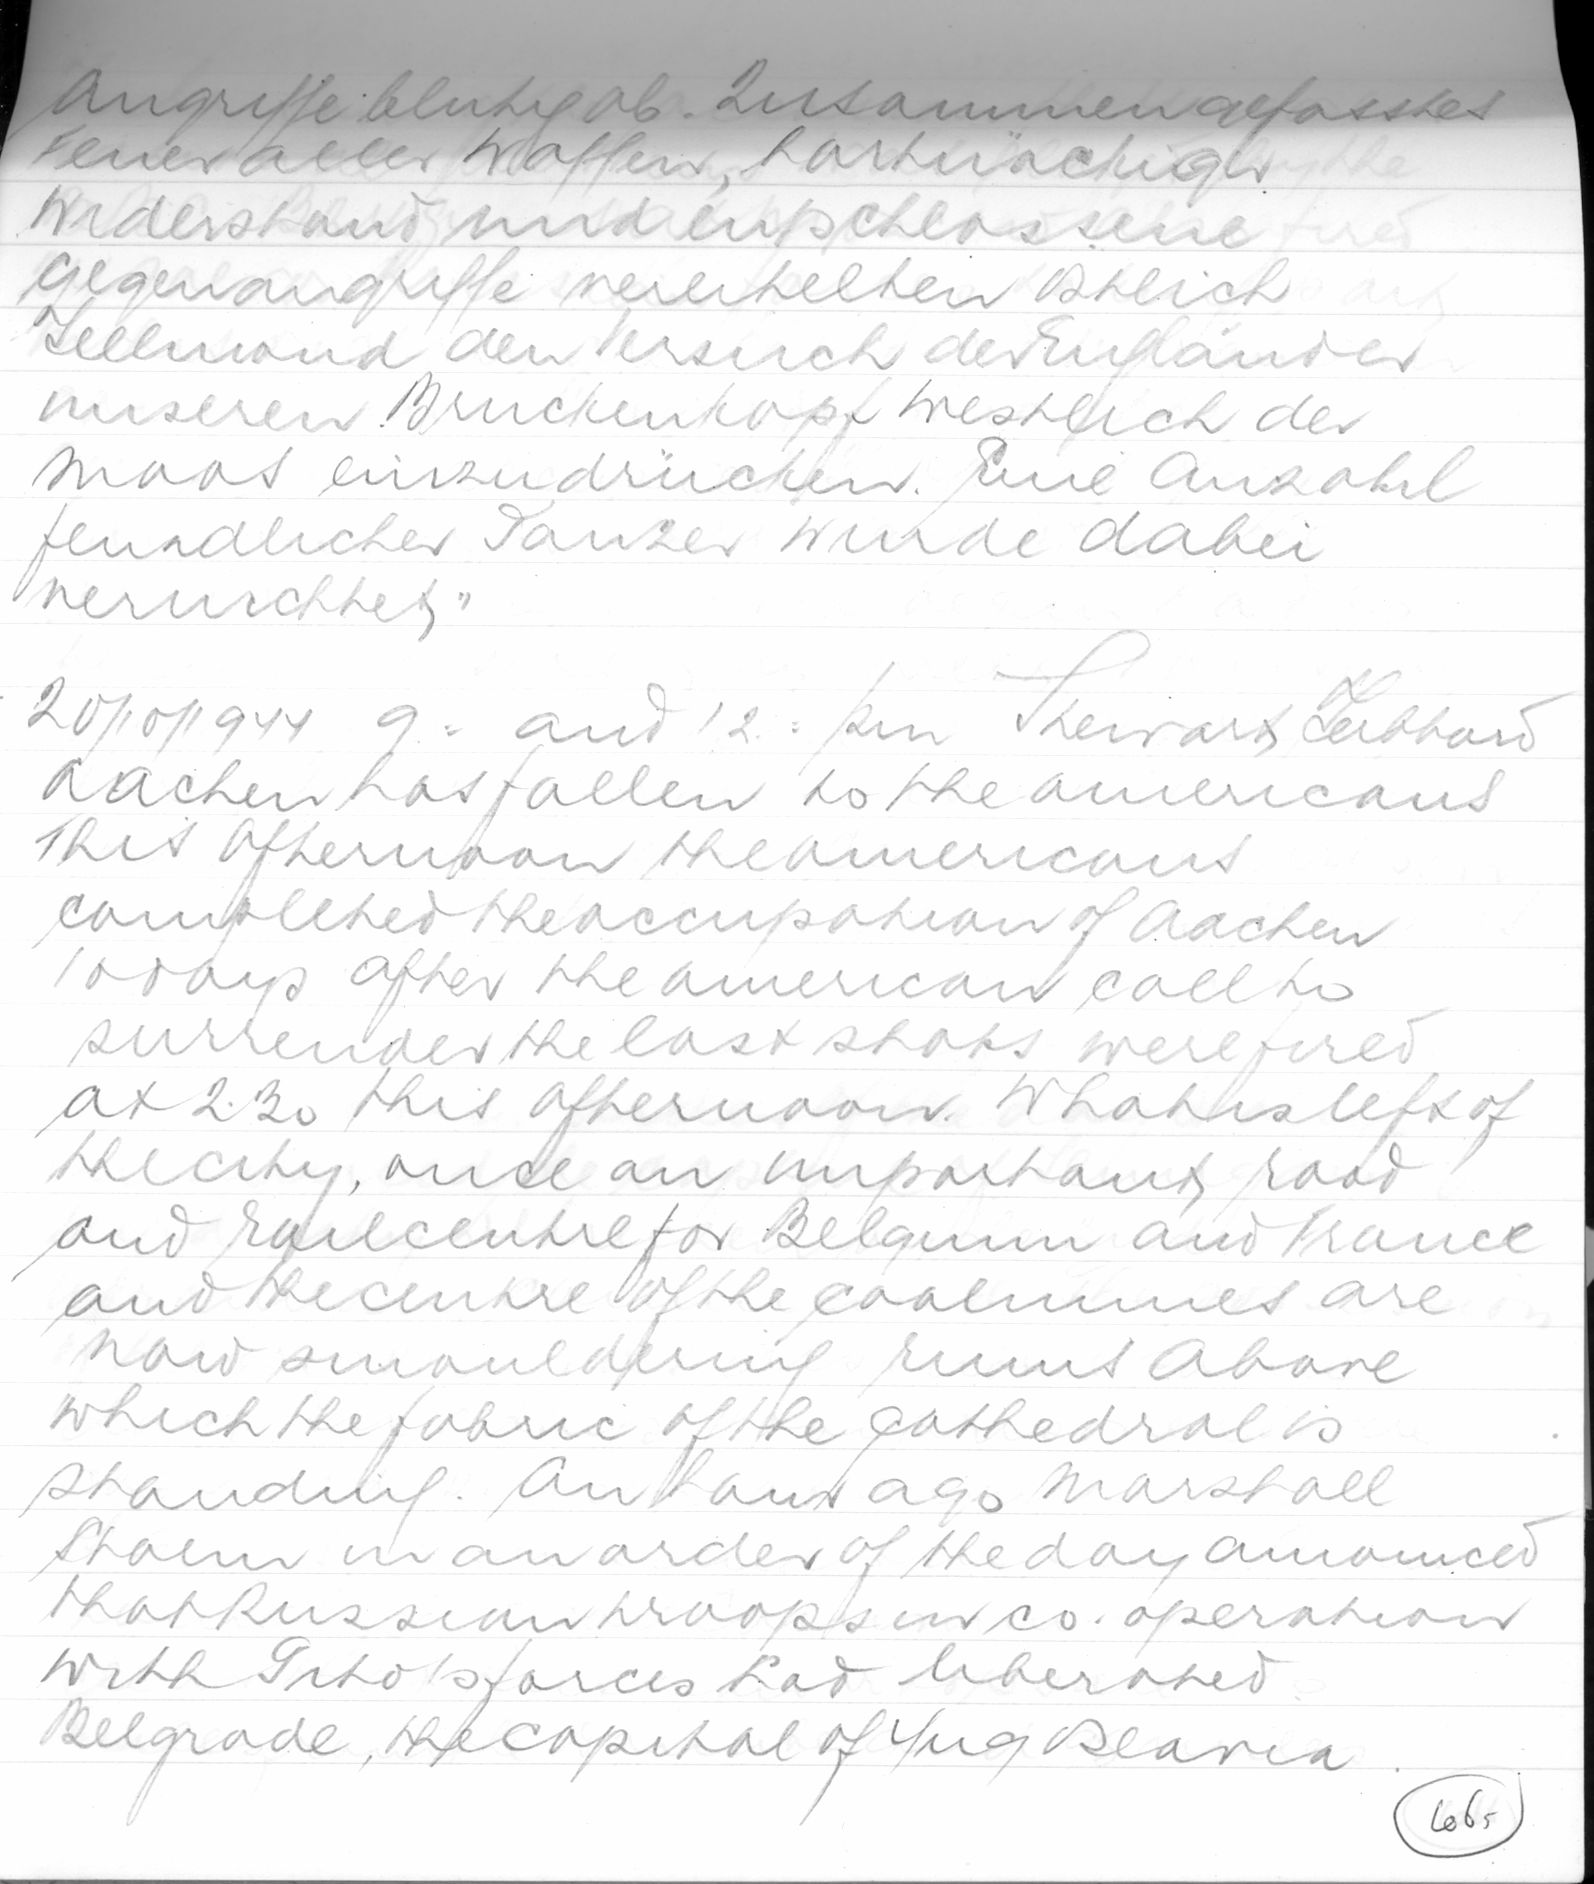 Angriffe blutig ab. Zusammengefasstes
Feuer aller Waffen, hartnäckiger
Widerstand und entschlossene
Gegenangriffe vereitelten östlich
Hellmond den Versuch der Engländer
unseren Brückenkopf westlich der
Maas einzudrücken. Eine Anzahl
feindlicher Panzer wurde dabei
vernichtet."
20/10/1944 9.= and 12.= pm Stewart Hibbard
Aachen has fallen to the americans
This afternoon the americans
completed the occupation of Aachen
10 days after the american call to
surrender the last shots were fired
at 2.30 this afternoon. What is left of
the city, once an important road
and railcentre for Belgium and France
and the centre of the coalmines are
now smouldering ruins above
which the fabric of the cathedral is
standing. An hour ago Marshall
Stalin in an order of the day announced
that Russian troops in co.operation
with Tito's forces had liberated
Belgrade, the capital of Yugoslavia.